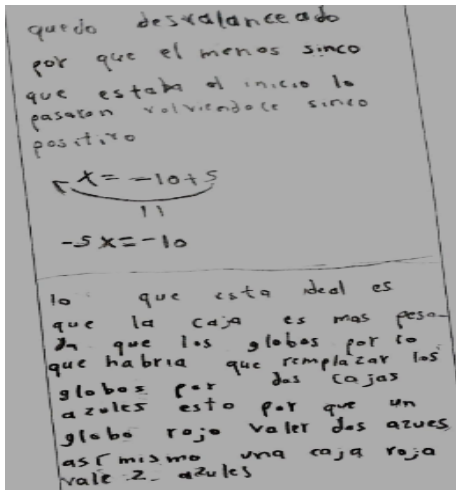 quedo desvalanceado
por que el menos sinco
que estaba al inicio lo
pasaron volviendoce sinco
positivo
x = -10+5
11
-5x=-10
lo que esta ideal es
que la caja es mas pesa-
da que los globos por lo
que habria que remplazar los
globos por dos cajas
azules esto por que un
globo rojo valer dos azues
así mismo una caja roja
vale 2 azules